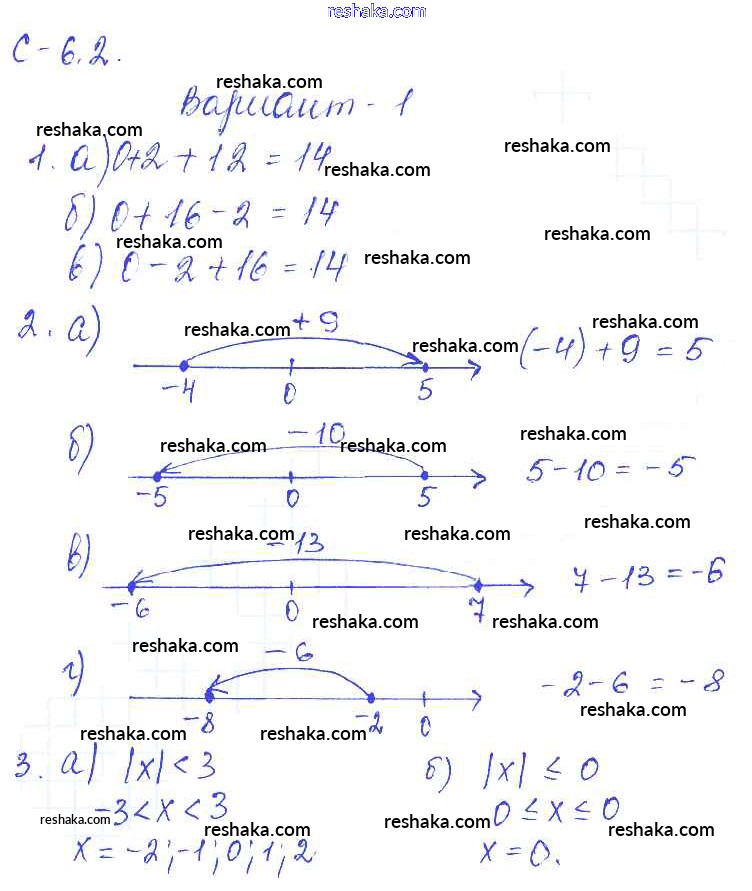 reshaka.com
С-6.2.
reshaka.com
Вариант-1
reshaka.com
reshaka.com
1. а) 0+2+12=14 reshaka.com
б) 0+16-2=14
reshaka.com reshaka.com
в) 0-2+16=14 reshaka.com
2. а) reshaka.com +9 reshaka.com
reshaka.com (-4)+9=5
-4 0 5
б) reshaka.com -10 reshaka.com reshaka.com
5-10=-5
-5 0 5
reshaka.com reshaka.com reshaka.com
в) -13
7-13=-6
-6 0 7
reshaka.com reshaka.com reshaka.com
г) -6
-2-6=-8
reshaka.com
-8 -2 0
reshaka.com reshaka.com
3. а) |x|<3 б) |x|≤0
-3<x<3 0≤x≤0
reshaka.com reshaka.com reshaka.com reshaka.com
x=-2;-1;0;1;2 x=0.